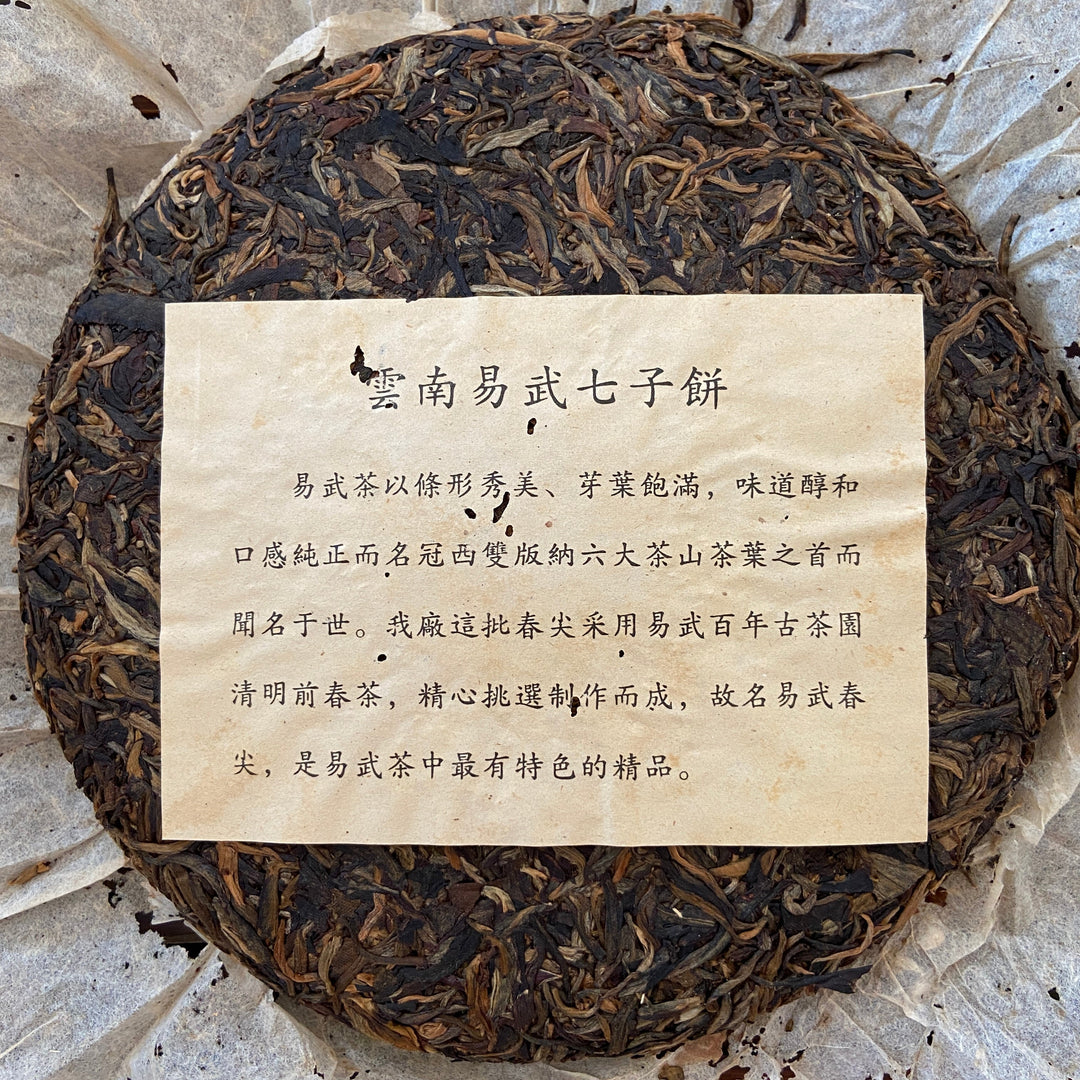 雲南易武七子餅
易武茶以條形秀美、芽葉飽滿，味道醇和
口感純正而名冠西雙版納六大茶山茶葉之首而
聞名于世。我廠這批春尖采用易武百年古茶園
清明前春茶，精心挑選制作而成，故名易武春
尖，是易武茶中最有特色的精品。